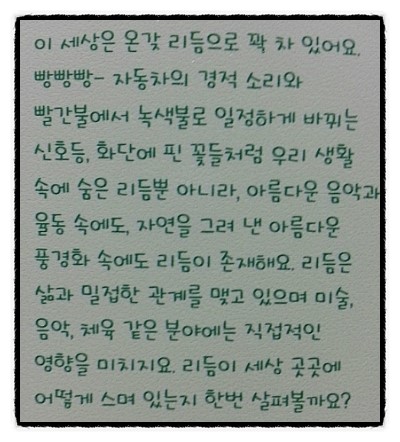 이 세상은 온갖 리듬으로 꽉 차 있어요.
빵빵빵- 자동차의 경적 소리와
빨간불에서 녹색불로 일정하게 바뀌는
신호등, 화단에 핀 꽃들처럼 우리 생활
속에 숨은 리듬뿐 아니라, 아름다운 음악과
율동 속에도, 자연을 그려 낸 아름다운
풍경화 속에도 리듬이 존재해요. 리듬은
삶과 밀접한 관계를 맺고 있으며 미술,
음악, 체육 같은 분야에는 직접적인
영향을 미치지요. 리듬이 세상 곳곳에
어떻게 스며 있는지 한번 살펴볼까요?